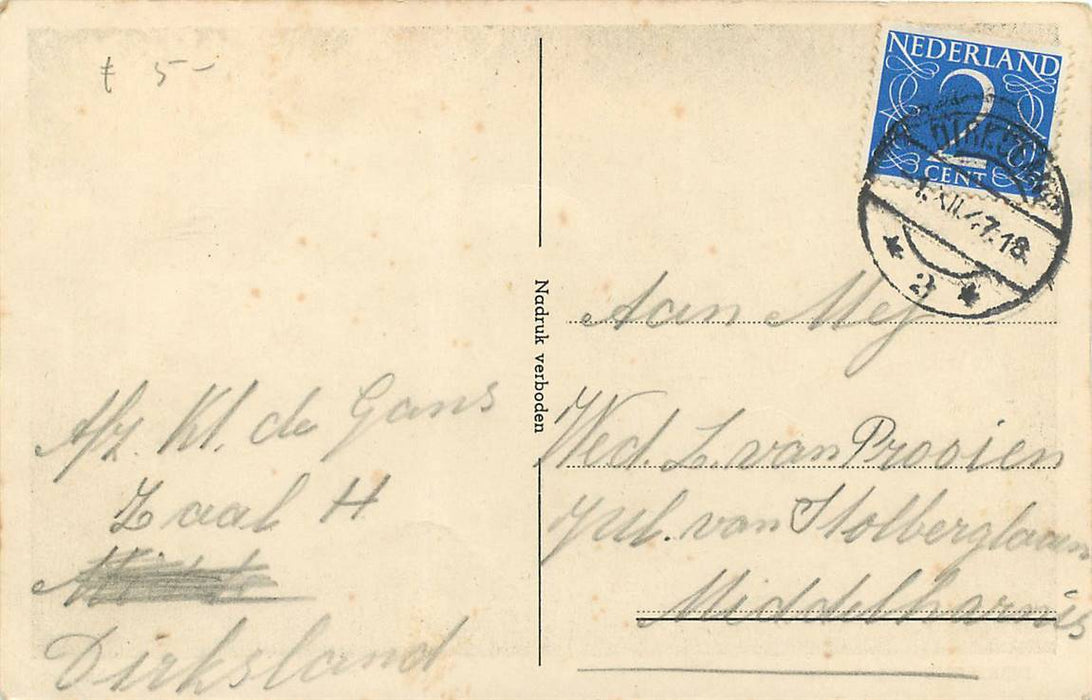 f 5-
NEDERLAND
2
CENT
DIRKSLAND
1.XII.47.18
2
Nadruk verboden
Aan Mej
Wed. L. van Prooien
Jul. van Stolberglaan
Middelharnis
Afz. Kl. de Gans
Zaal H
Dirksland